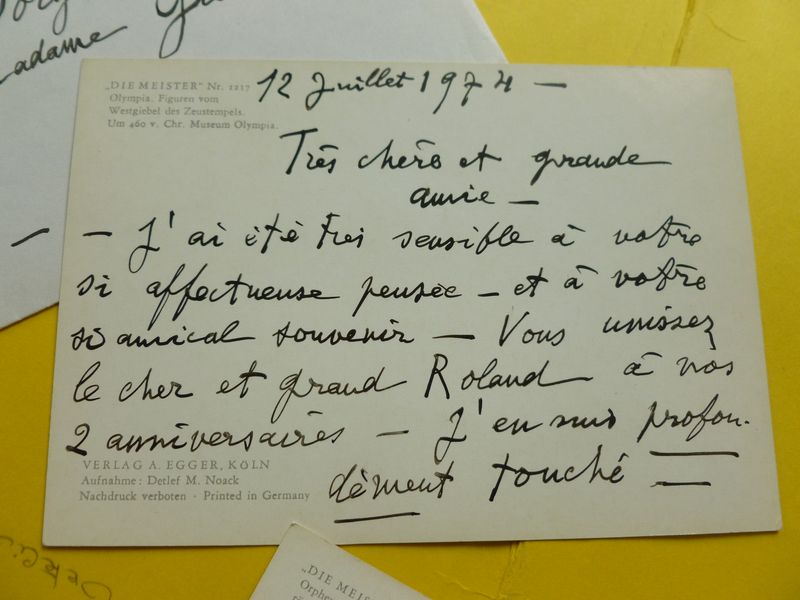 adame
„DIE MEISTER" Nr. 1217
Olympia. Figuren vom
Westgiebel des Zeustempels.
Um 460 v. Chr. Museum Olympia.
12 Juillet 1974 —
Très chère et grande
amie —
— J'ai été très sensible à votre
si affectueuse pensée — et à votre
si amical souvenir — Vous unissez
le cher et grand Roland à nos
2 anniversaires — J'en suis profon-
dément touché
VERLAG A. EGGER, KÖLN
Aufnahme: Detlef M. Noack
Nachdruck verboten · Printed in Germany
„DIE MEIS
Orphe